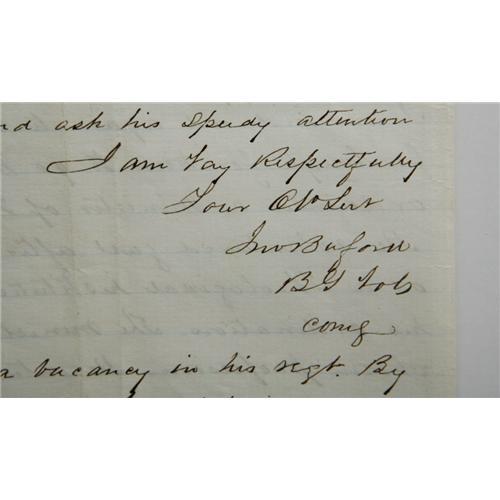 nd ask his speedy attention
I am Vay Respectfully
Your Obt Servt
Jno Buford
B G Vols
comg
a vacancy in his regt. By